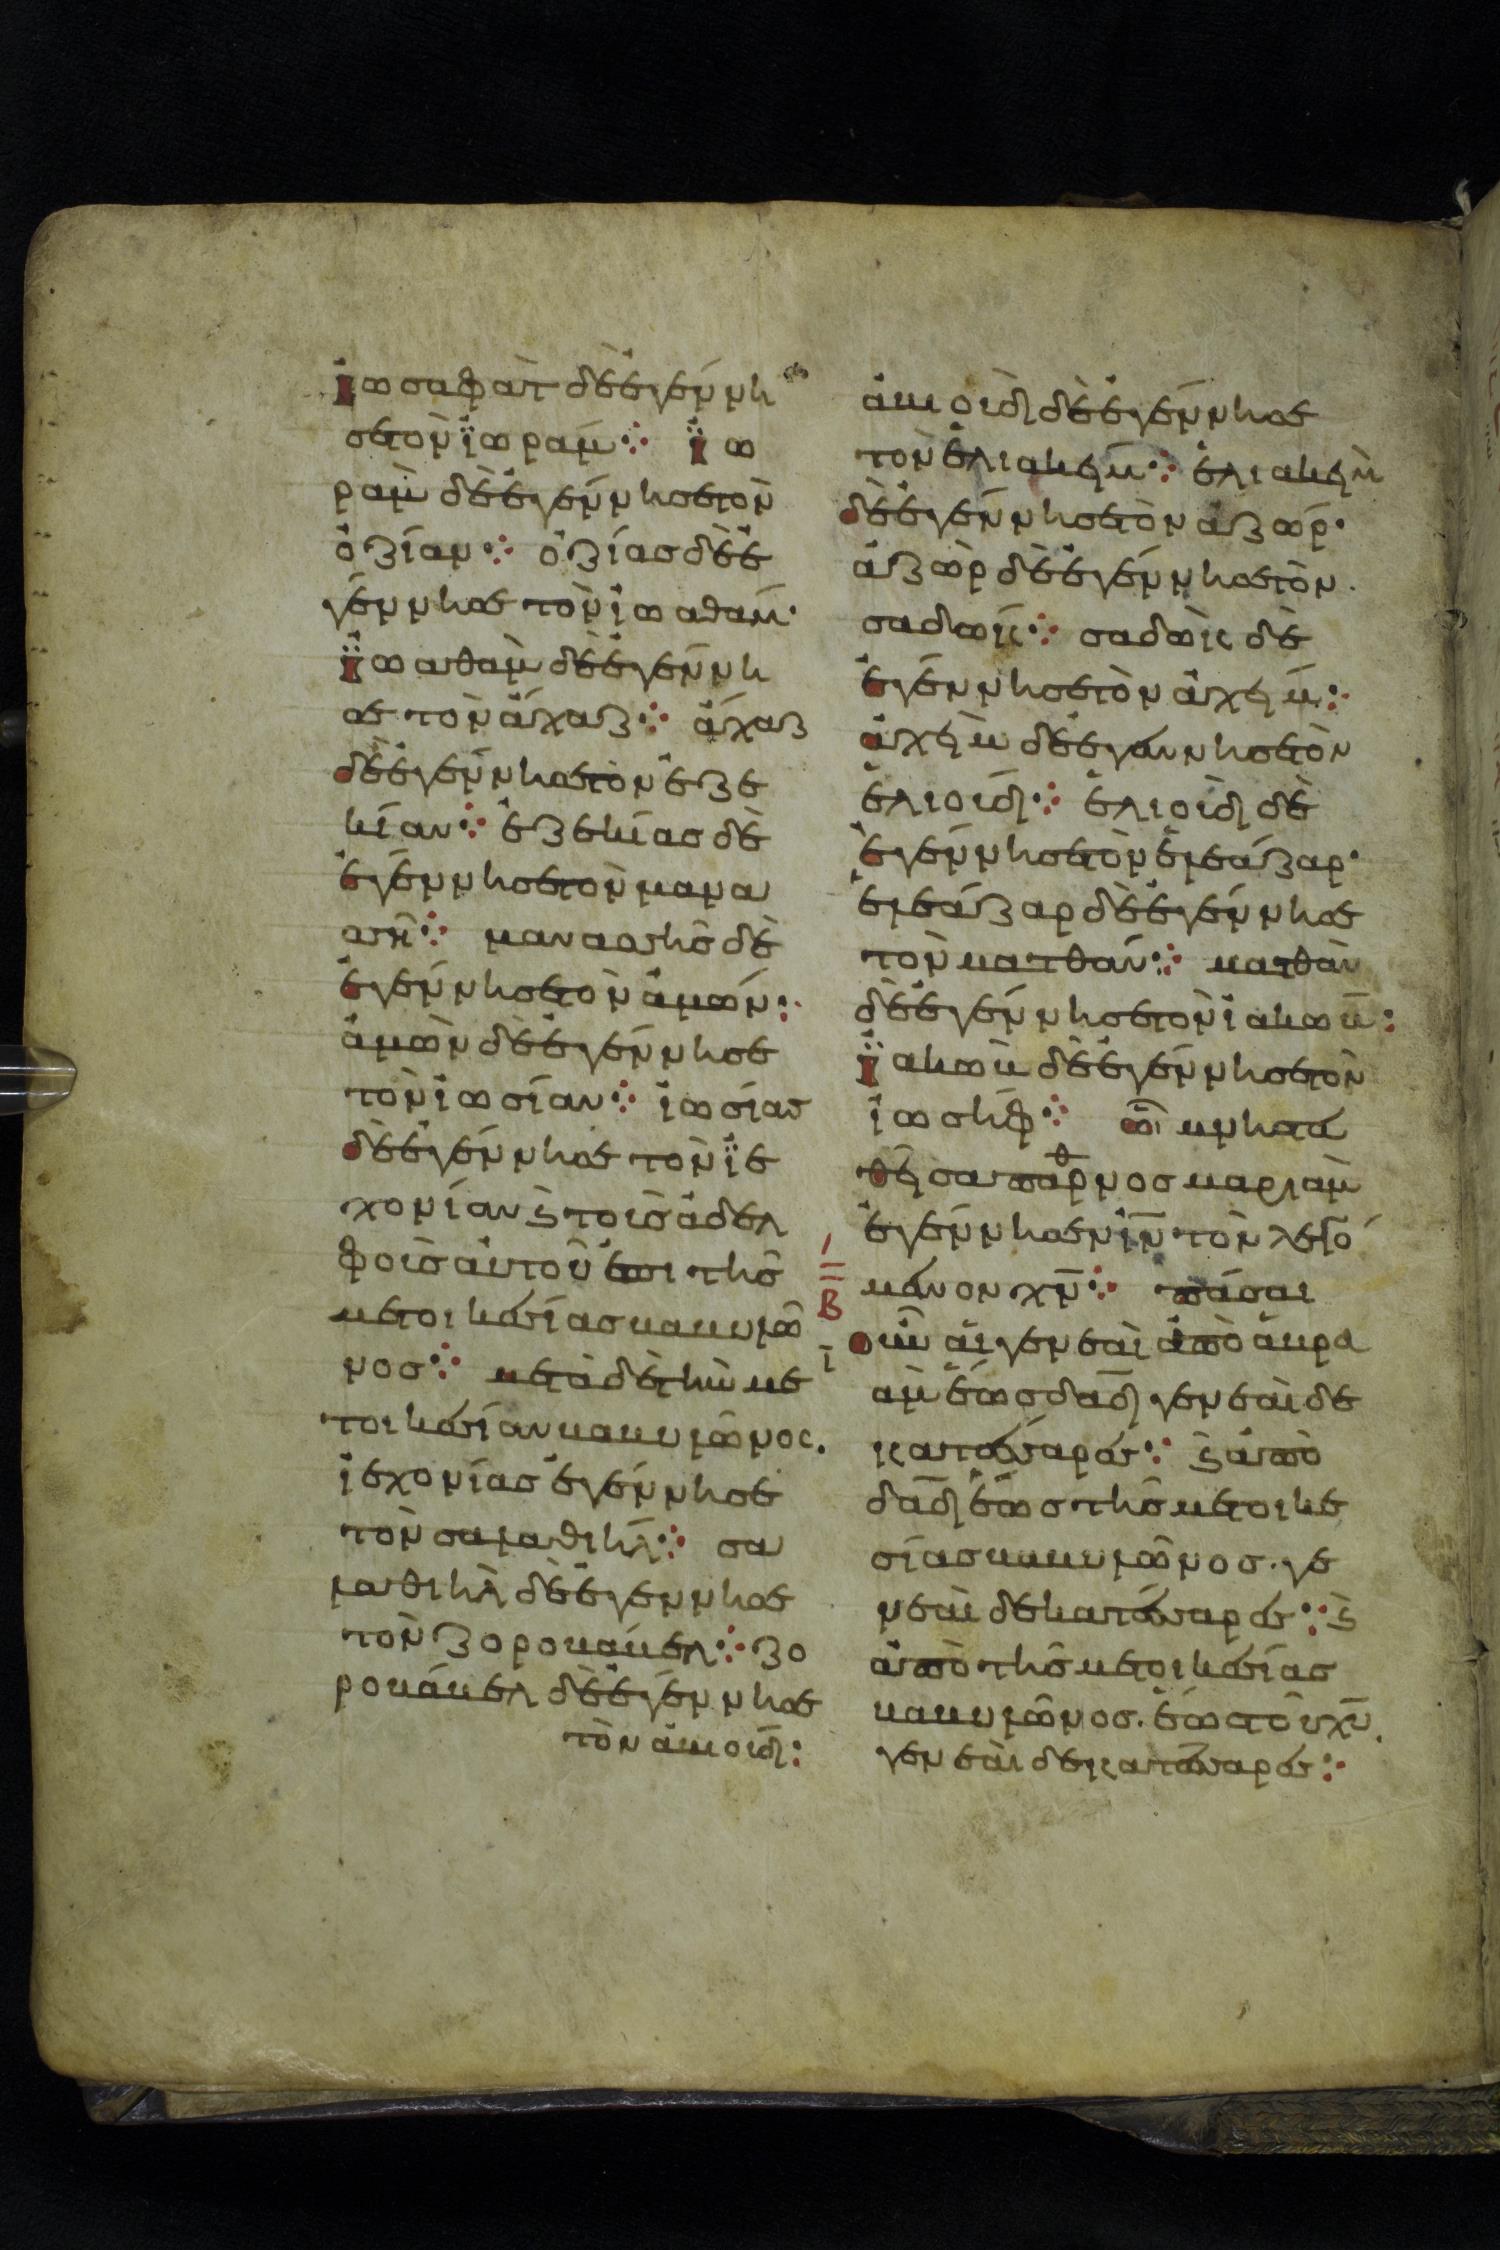 ἰωσαφὰτ δὲ ἐγέννη
σε τὸν ἰωράμ ⁘ ἰω
ρὰμ δὲ ἐγέννησε τὸν
ὀζίαν ⁘ ὀζίας δὲ ἐ
γέννησε τὸν ἰωαθάμ·
ἰωαθὰμ δὲ ἐγέννη
σε τὸν ἄχαζ ⁘ ἄχαζ
δὲ ἐγέννησε τὸν ἐζε
κίαν ⁘ ἐζεκίας δὲ
ἐγέννησε τὸν μανα
σῆ ⁘ μανασσῆς δὲ
ἐγέννησε τὸν ἀμών ⁘
ἀμὼν δὲ ἐγέννησε
τὸν ἰωσίαν ⁘ ἰωσίας
δὲ ἐγέννησε τὸν ἰε
χονίαν ϗ τοὶς ἀδελ
φοὶς αὐτοῦ ἐπι τῆς
μετοικεσίας βαβυλῶ
νος ⁘ μετὰ δὲ τὴν με
τοικεσίαν βαβυλῶνος.
ἰεχονίας ἐγέννησε
τὸν σαλαθιήλ ⁘ σα
λαθιὴλ δὲ ἐγέννησε
τὸν ζοροβάβελ ⁘ ζο
ροβάβελ δὲ ἐγέννησε
τὸν ἀβιοίδ:
ἀβιοὶδ δὲ ἐγέννησε
τὸν ἐλιακείμ ⁘ ἐλιακεὶμ
δὲ ἐγέννησε τὸν ἀζώρ·
ἀζὼρ δὲ ἐγέννησε τὸν
σαδώκ ⁘ σαδὼκ δὲ
ἐγέννησε τὸν ἀχείμ ⁘
ἀχεὶμ δὲ ἐγέννησε τὸν
ἐλιοίδ ⁘ ἐλιοὶδ δὲ
ἐγέννησε τὸν ἐλεάζαρ·
ἐλεάζαρ δὲ ἐγέννησε
τὸν ματθάν ⁘ ματθὰν
δὲ ἐγέννησε τὸν ἰακώβ ⁘
ἰακὼβ δὲ ἐγέννησε τὸν
ἰωσήφ ⁘ ὧ μνηστευ
θεῖσα παρθνος μαριὰμ
ἐγέννησεν ιν τὸν λεγό
μενον χν ⁘ πάσαι
οὖν αἱ γενεαὶ ἀπὸ ἀβρα
ὰμ ἕως δαδ γενεαὶ δε
κατέσσαρες ⁘ ϗ ἀπὸ
δαδ ἕως τῆς μετοικε
σίας βαβυλῶνος. γε
νεαὶ δεκατέσσαρες ⁘ ϗ
ἀπὸ τῆς μετοικεσίας
βαβυλῶνος. ἕως τοῦ χυ.
γενεαὶ δεκατέσσαρες ⁘
Β
ι